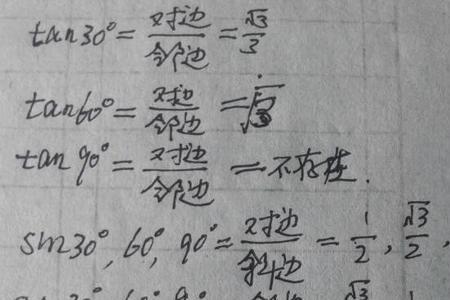 tan30°=对边/邻边=√3/3
tan60°=对边/邻边=√3
tan90°=对边/邻边=不存在.
sin30°,60°,90°=对边/斜边=1/2,√3/2,